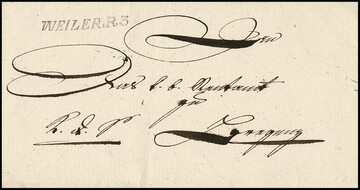 WEILER.R3
An
das k. k. Rentamt
zu
Bregenz